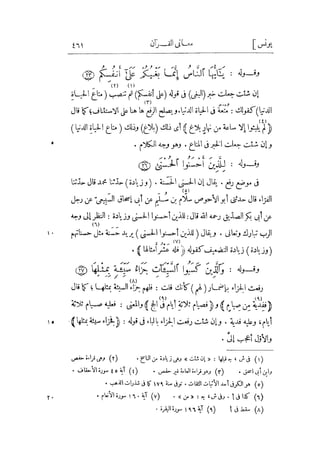 يونس ] معانى القــرآن ٤٦١
وقــوله : ﴿ يَٰٓأَيُّهَا ٱلنَّاسُ إِنَّمَا بَغْيُكُمْ عَلَىٰٓ أَنفُسِكُم ﴾ ٢٣
إن شئت جعلت خبر (البغى) فى قوله (على أنفسكم) ثم تنصب (١) (متاع (٢) الحيــاة
الدنيا) كقولك : مُتْعةً فى الحياة الدنيا. ويصلح الرفع هاهنا على الاستئناف ؛ كما قال
﴿لم يلبثوا إلا ساعة من نهار بلاغ﴾ (٣) أى ذلك (بلاغ) وذلك (متاع الحياة الدنيا)
و إن شئت جعلت الخبر فى المتاع . وهو وجه الكلام . ٥
وقــوله : لِّلَّذِينَ أَحْسَنُوا ٱلْحُسْنَىٰ ٢٦
فى موضع رفع . يقال إن الحسنى الحَسَنة . (وزيادة) حدّثنا محمد قال حدّثنا
الفرّاء قال حدثنى أبو الأحوص سلّام بن سُليم عن أبى إسحاق السَّبِيعىّ عن رجل
عن أبى بكر الصدّيق رحمه الله قال : للذين أحسنوا الحسنى وزيادة : النظر إلى وجه
الرب تبارك وتعالى . ويقال (للذين أحسنوا الحسنى) يريد حَسَنة مثل حسناتهم (٦) ١٠
(وزيادة) زيادة التضعيف كقوله ﴿فله عَشْر أمثالها﴾ (٧) .
وقــوله : وَٱلَّذِينَ كَسَبُوا ٱلسَّيِّـَٔاتِ جَزَآءُ سَيِّئَةٍۭ بِمِثْلِهَا ٢٧
رفعت الجزاء بإضمــار (لهم) كأنك قلت : فلهم جزاء (٨) السيئة بمثلهــا ؛ كما قال
﴿ففدية من صيام﴾ (٩) و ﴿فصيام ثلاثة أيام فى الحج﴾ (٩) والمعنى : فعليه صيــام ثلاثة
أيام، وعليه فدية . و إن شئت رفعت الجزاء بالباء فى قوله : ﴿جزاء سيئة بمثلها﴾ ١٥
والأوّل أعجب إلىّ .
(١) فى ش، ج قبلها : « إن شئت » وهى زيادة من الناسخ . (٢) وهى قراءة حفص
وابن أبى اسحق . (٣) وهو قراءة العامة غير حفص . (٤) آية ٣٥ سورة الأحقاف .
(٥) هو الكوفى أحد الأثبات الثقات . توفى سنة ١٧٩ كما فى شذرات الذهب .
(٦) كذا فى أ . وفى ش، ج : « من » . (٧) آية ١٦٠ سورة الأنعام . ٢٠
(٨) سقط فى أ (٩) آية ١٩٦ سورة البقرة .